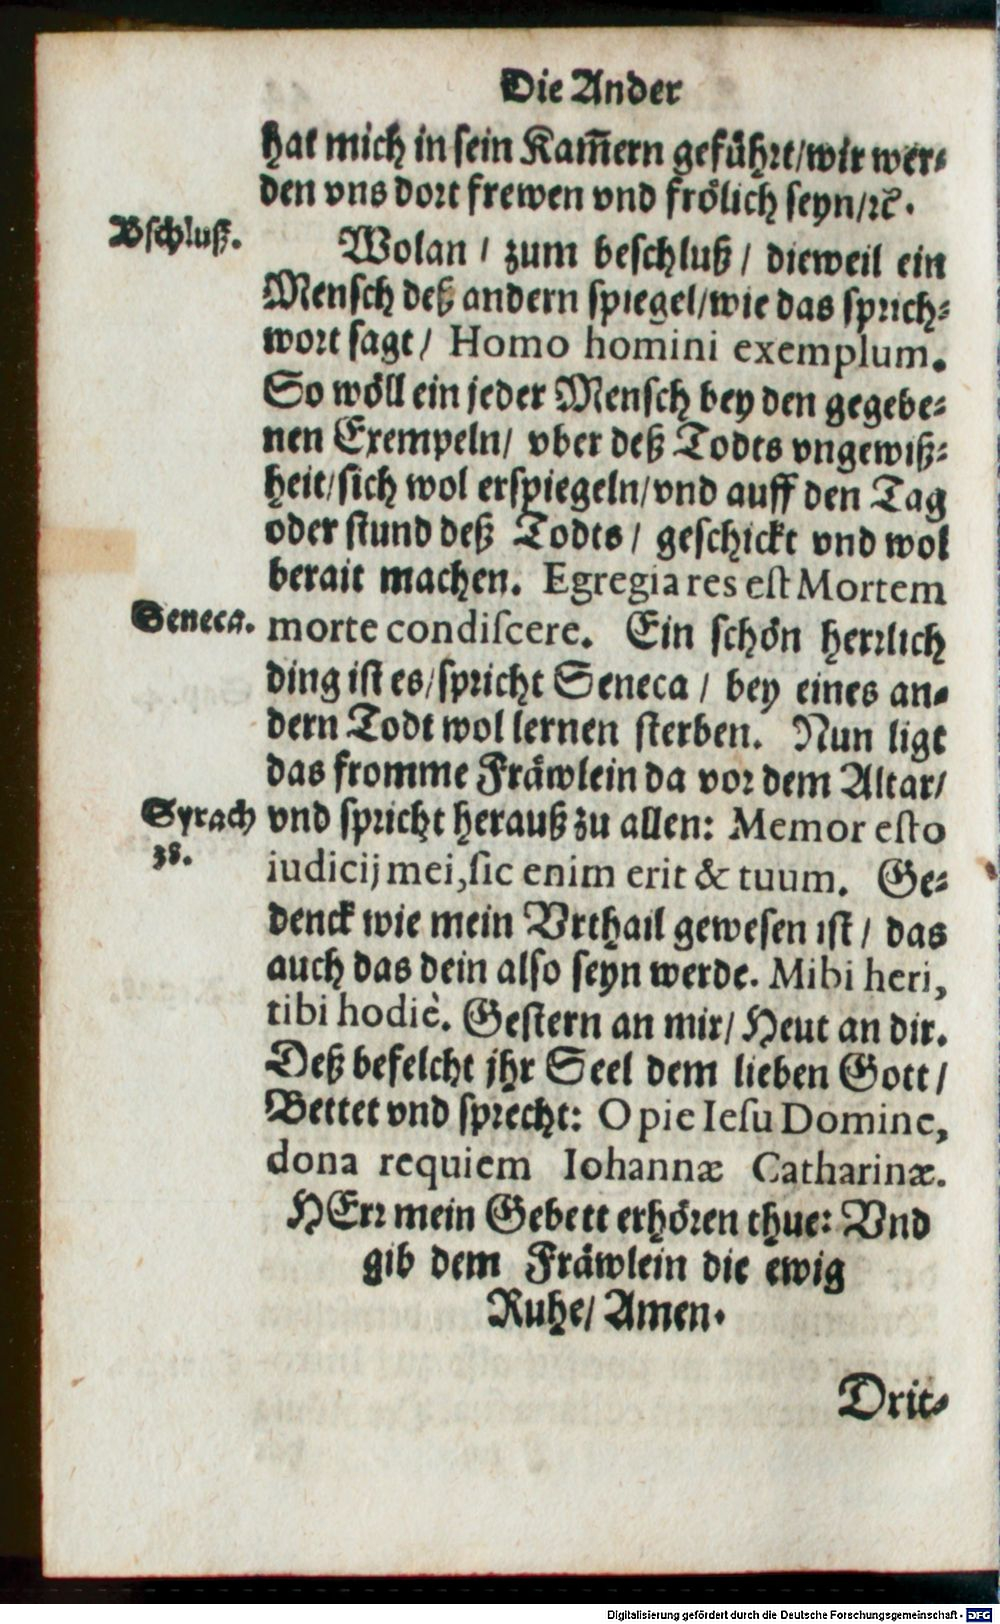 Die Ander
hat mich in sein Kam̃ern geführt/wir wer⸗
den vns dort frewen vnd frölich seyn/ꝛc̃.
Bschluß.
Wolan / zum beschluß / dieweil ein
Mensch deß andern spiegel/wie das sprich⸗
wort sagt/ Homo homini exemplum.
So wöll ein jeder Mensch bey den gegebe⸗
nen Exempeln/ vber deß Todts vngewiß⸗
heit/sich wol erspiegeln/vnd auff den Tag
oder stund deß Todts / geschickt vnd wol
berait machen. Egregia res est Mortem
Seneca.
morte condiscere. Ein schön herrlich
ding ist es/spricht Seneca / bey eines an⸗
dern Todt wol lernen sterben. Nun ligt
das fromme Fräwlein da vor dem Altar/
Syrach
38.
vnd spricht herauß zu allen: Memor esto
iudicij mei, sic enim erit & tuum. Ge⸗
denck wie mein Vrthail gewesen ist / das
auch das dein also seyn werde. Mihi heri,
tibi hodiè. Gestern an mir/ Heut an dir.
Deß befelcht jhr Seel dem lieben Gott /
Bettet vnd sprecht: O pie Iesu Domine,
dona requiem Iohannæ Catharinæ.
HErr mein Gebett erhören thue: Vnd
gib dem Fräwlein die ewig
Ruhe/ Amen.
Drit⸗
Digitalisierung gefördert durch die Deutsche Forschungsgemeinschaft - DFG